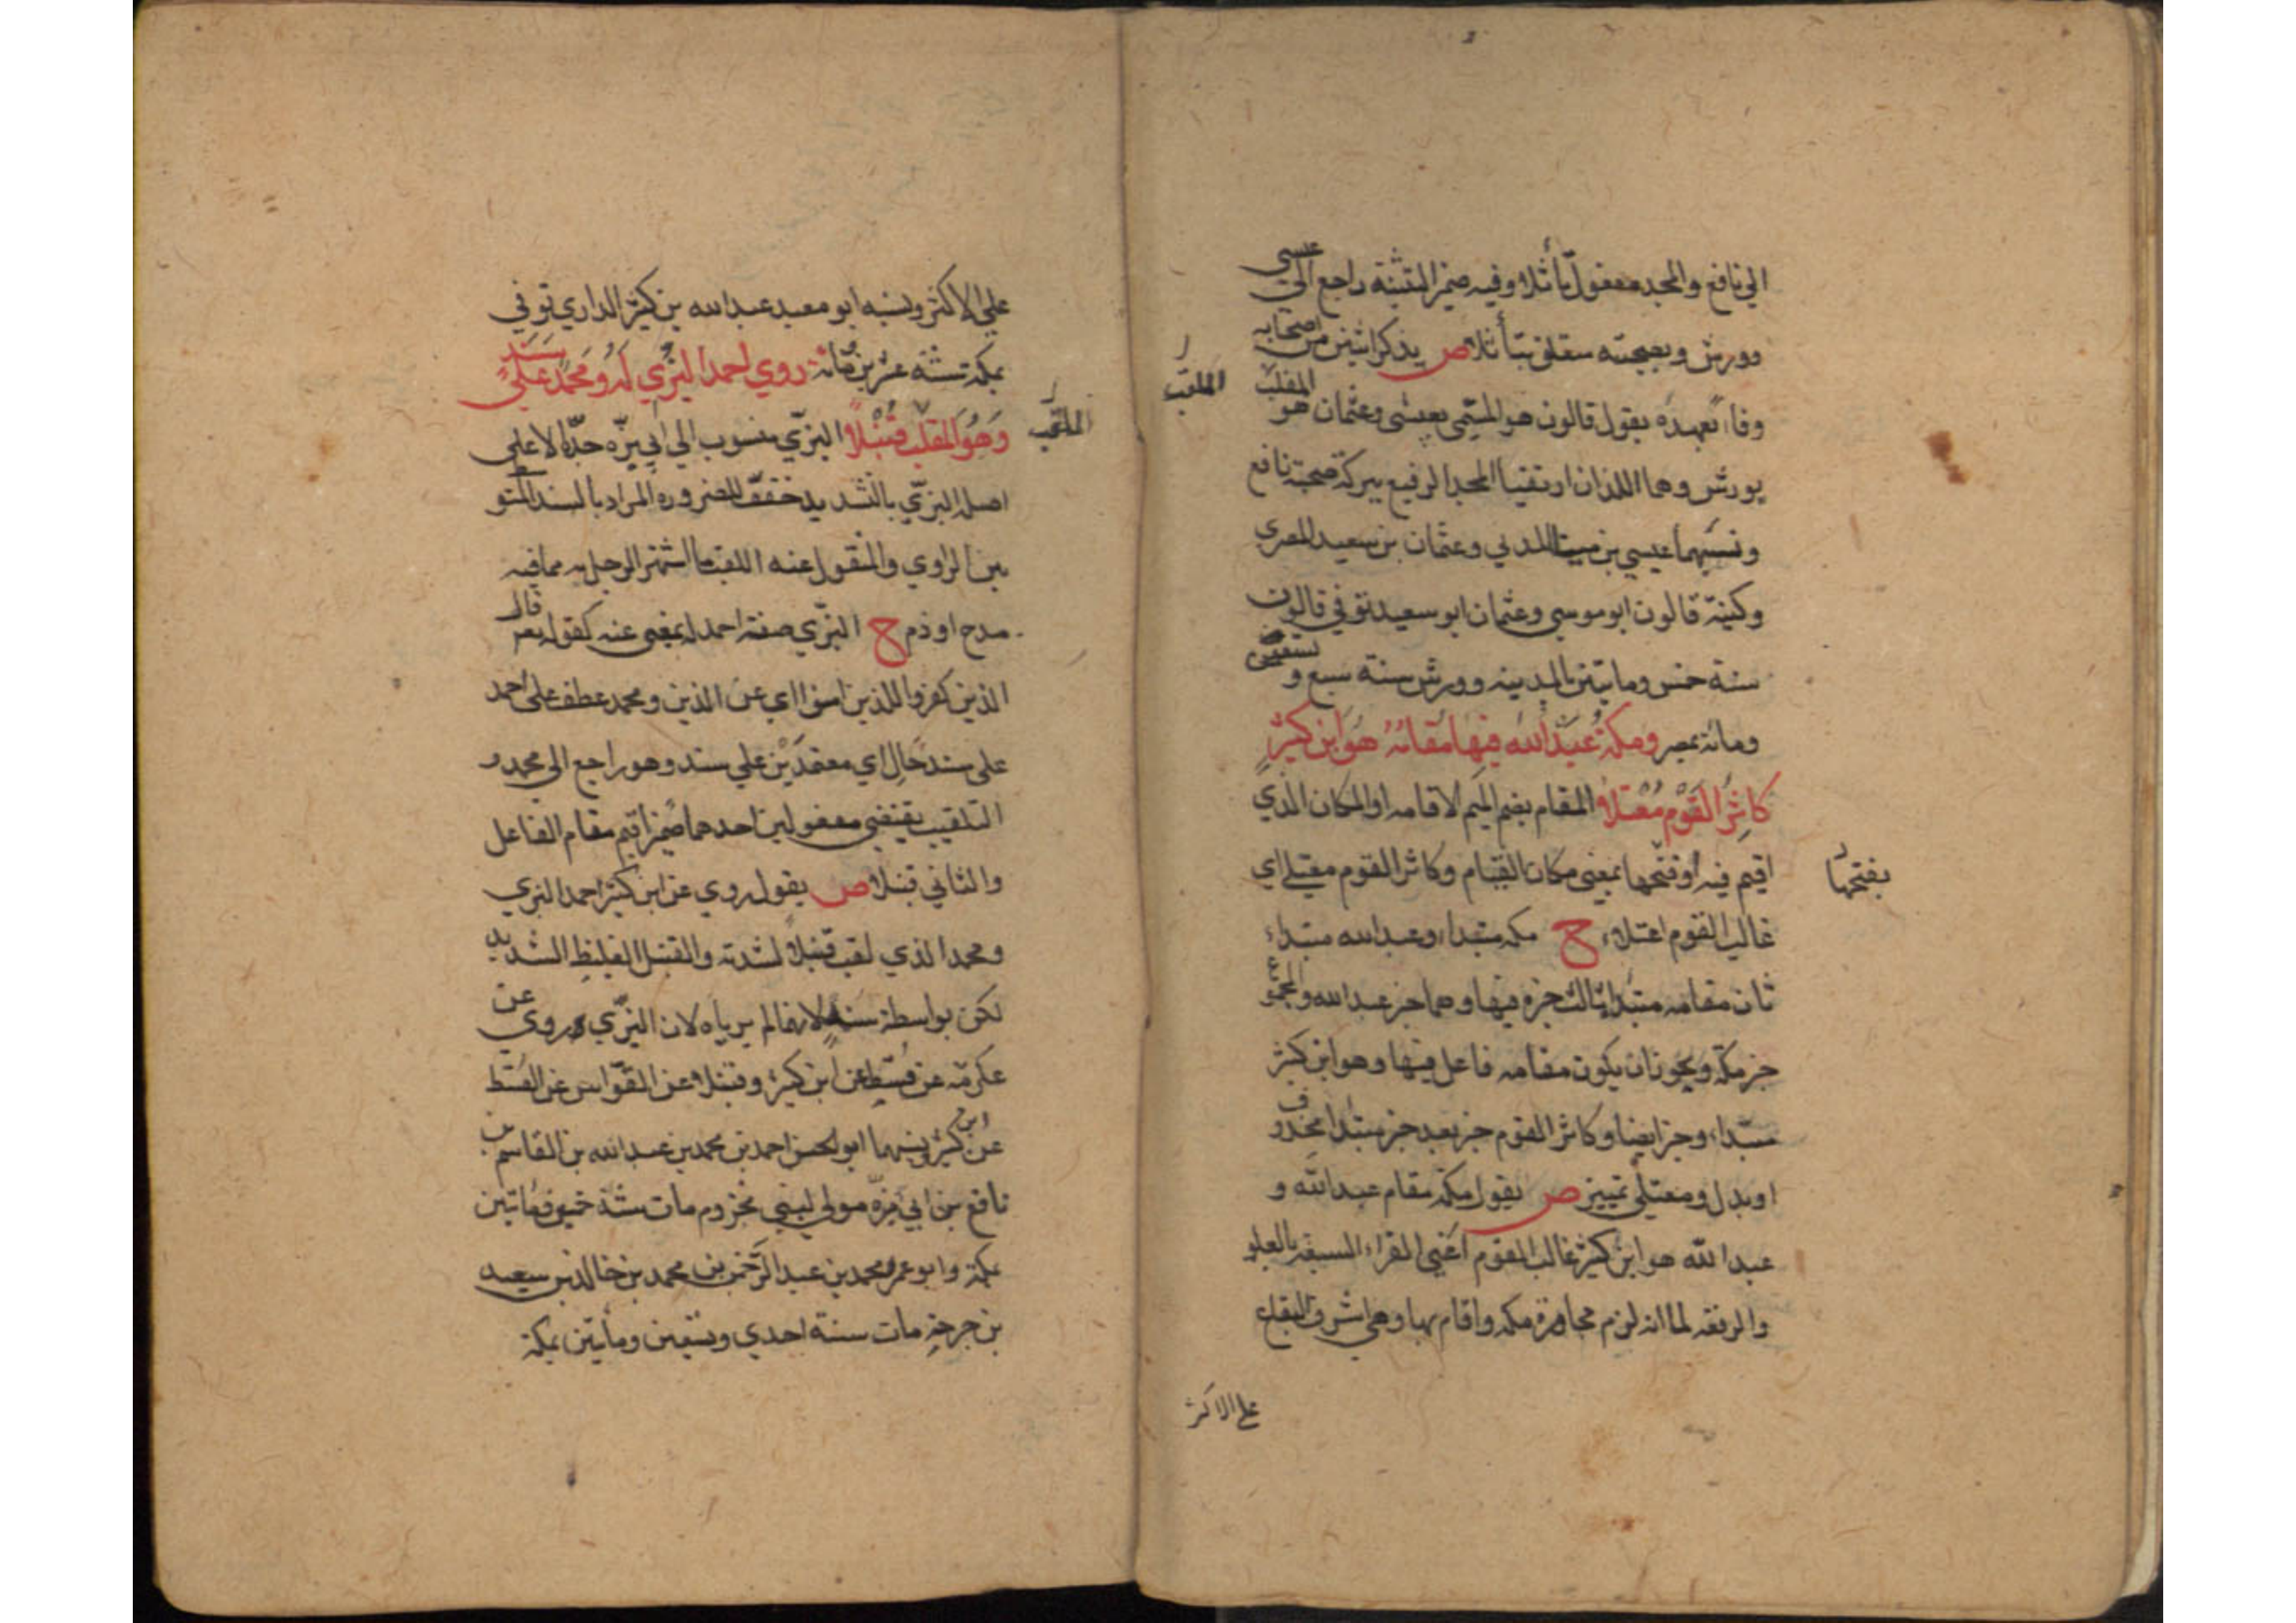 الي نافع والمجد مفعول تأثلا وفيه ضمير التثنية راجع الي عيسي
وورش وبصحبته متعلق بتأثلا ص يذكر اثنين من اصحابه
وفاء بعهده يقول قالون هو المسمي بعيسى وعثمان هو الملقب
بورش وهما اللذان ارتقيا المجد الرفيع ببركة صحبة نافع
ونسبهما عيسي بن مينا المدني وعثمان بن سعيد المصري
وكنية قالون ابو موسي وعثمان ابو سعيد توفي قالون
سنة خمس ومايتين بالمدينه وورش سنة سبع وتسعين
ومائة بمصر ومكة عبد الله فيها مقامه هو ابن كثير
كاثر القوم معتلا المقام بضم الميم الاقامه او المكان الذي
اقيم فيه او فتحها بمعنى مكان القيام وكاثر القوم معتلي اي
غالب القوم اعتلاء ح مكه مبتداء وعبد الله مبتداء
ثان مقامه مبتدا ثالث خبره فيها وهما خبر عبد الله والمجموع
خبر مكة ويجوز ان يكون مقامه فاعل فيها وهو ابن كثير
مبتداء وخبر ايضا وكاثر القوم خبر بعد خبر مبتدا محذوف
او بدل ومعتلي تمييز ص يقول مكة مقام عبد الله و
عبد الله هو ابن كثير غالب القوم اعني القراء السبعة بالعلو
والرفعه لما انه لزم مجاورة مكه واقام بها وهي اشرف البقاع
الملقب
بفتحها
علي الاكثر
علي الاكثر ونسبه ابو معبد عبد الله بن كثير الداري توفي
بمكة سنة عشرين ومائة روي احمد البزي له ومحمد علي سند
وهو الملقب قنبلا البزي منسوب الي ابي بزه جده الاعلى
اصله البزي بالتشديد خفف للضرورة المراد بالسند المتوسط
بين الراوي والمنقول عنه اللقب ما اشتهر الرجل به مما فيه
مدح او ذم ح البزي صفة احمد له بمعنى عنه كقوله تع قال
الذين كفروا للذين امنوا اي عن الذين ومحمد عطف على احمد
على سند حال اي معتمدين علي سند وهو راجع الي محمد و
التلقيب يقتضي مفعولين احدهما ضمير اقيم مقام الفاعل
والثاني قنبلا ص يقول روي عن ابن كثير احمد البزي
ومحمد الذي لقب قنبلا لشدته والقنبل الغليظ الشديد
لكن بواسطة سند لانهما لم يرياه لان البزي روي عن
عكرمة عن قسط عن ابن كثير وقنبلا عن القواس عن القسط
عن ابن كثير ونسبهما ابو الحسن احمد بن محمد بن عبد الله بن القاسم بن
نافع بن ابي بزه مولي لبني مخزوم مات سنة خمسين ومايتين
بمكة وابو عمر محمد بن عبد الرحمن بن محمد بن خالد بن سعيد
بن جرجة مات سنة احدي وتسعين ومأيتين بمكة
الملقب